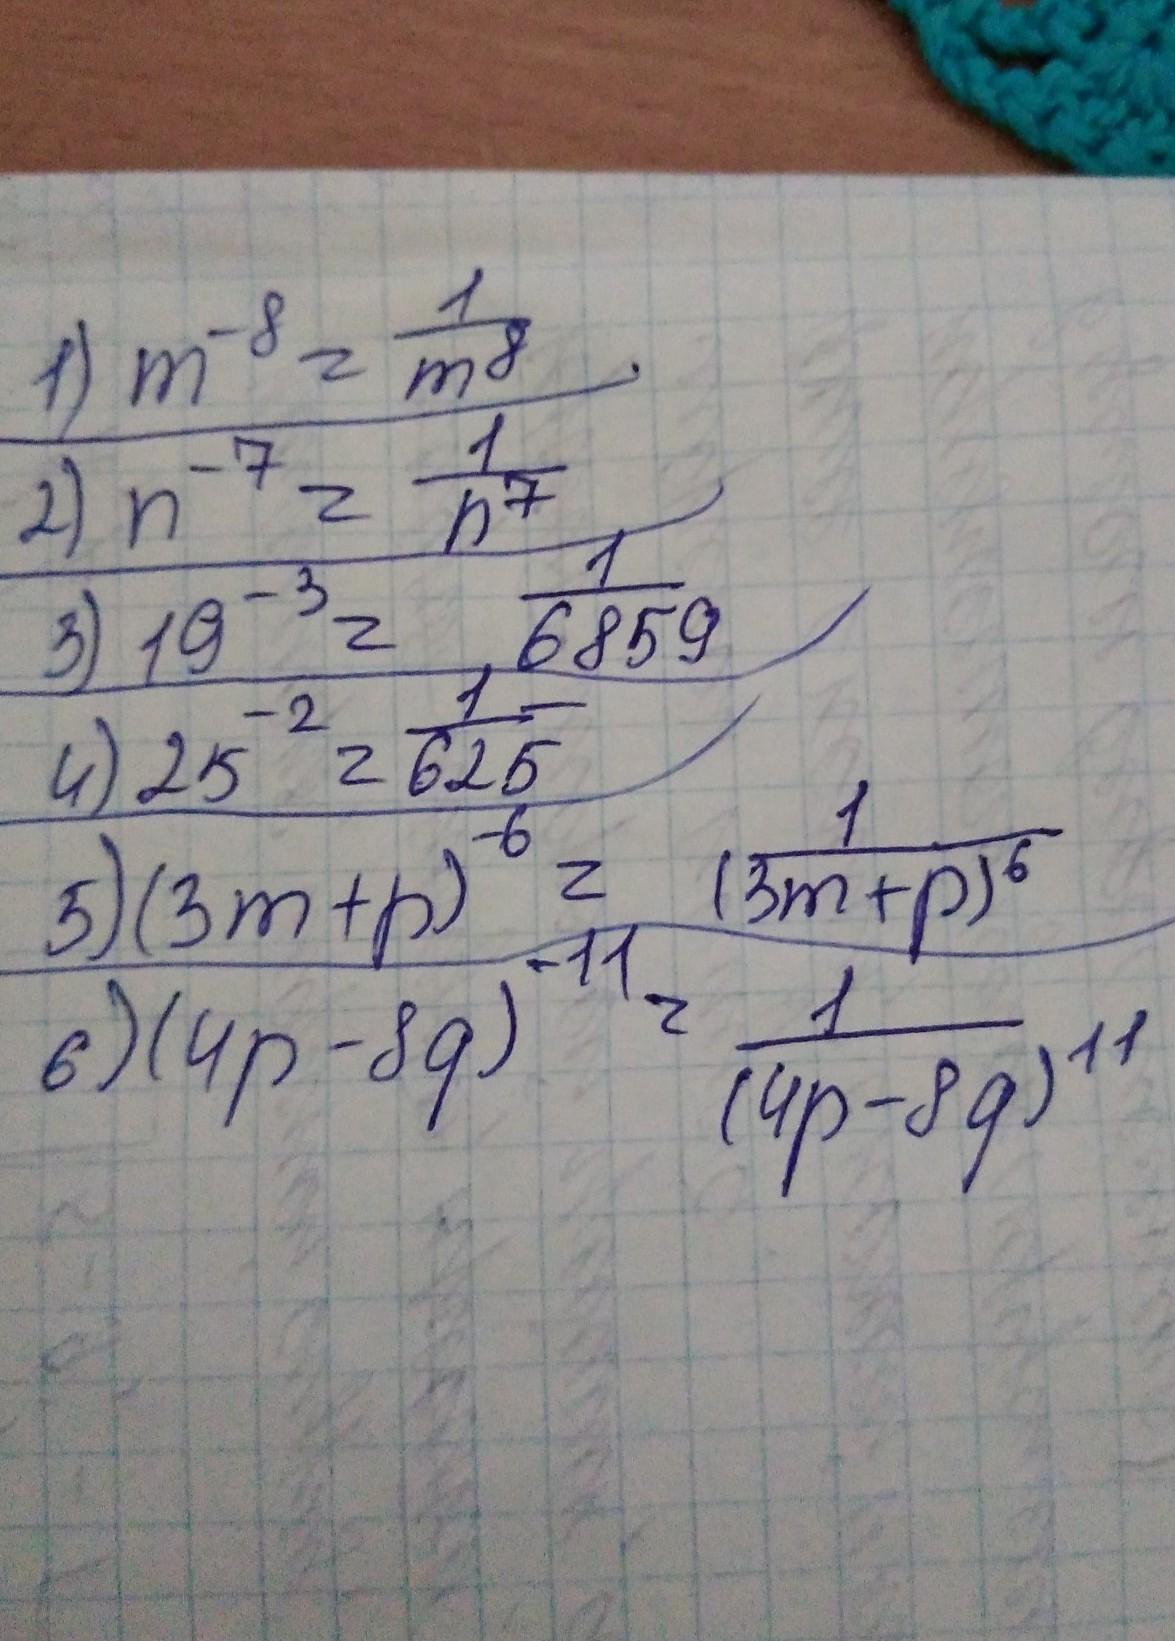 1) m^-8 = 1/m^8
2) n^-7 = 1/n^7
3) 19^-3 = 1/6859
4) 25^-2 = 1/625
5) (3m+p)^-6 = 1/(3m+p)^6
6) (4p-8q)^-11 = 1/(4p-8q)^11